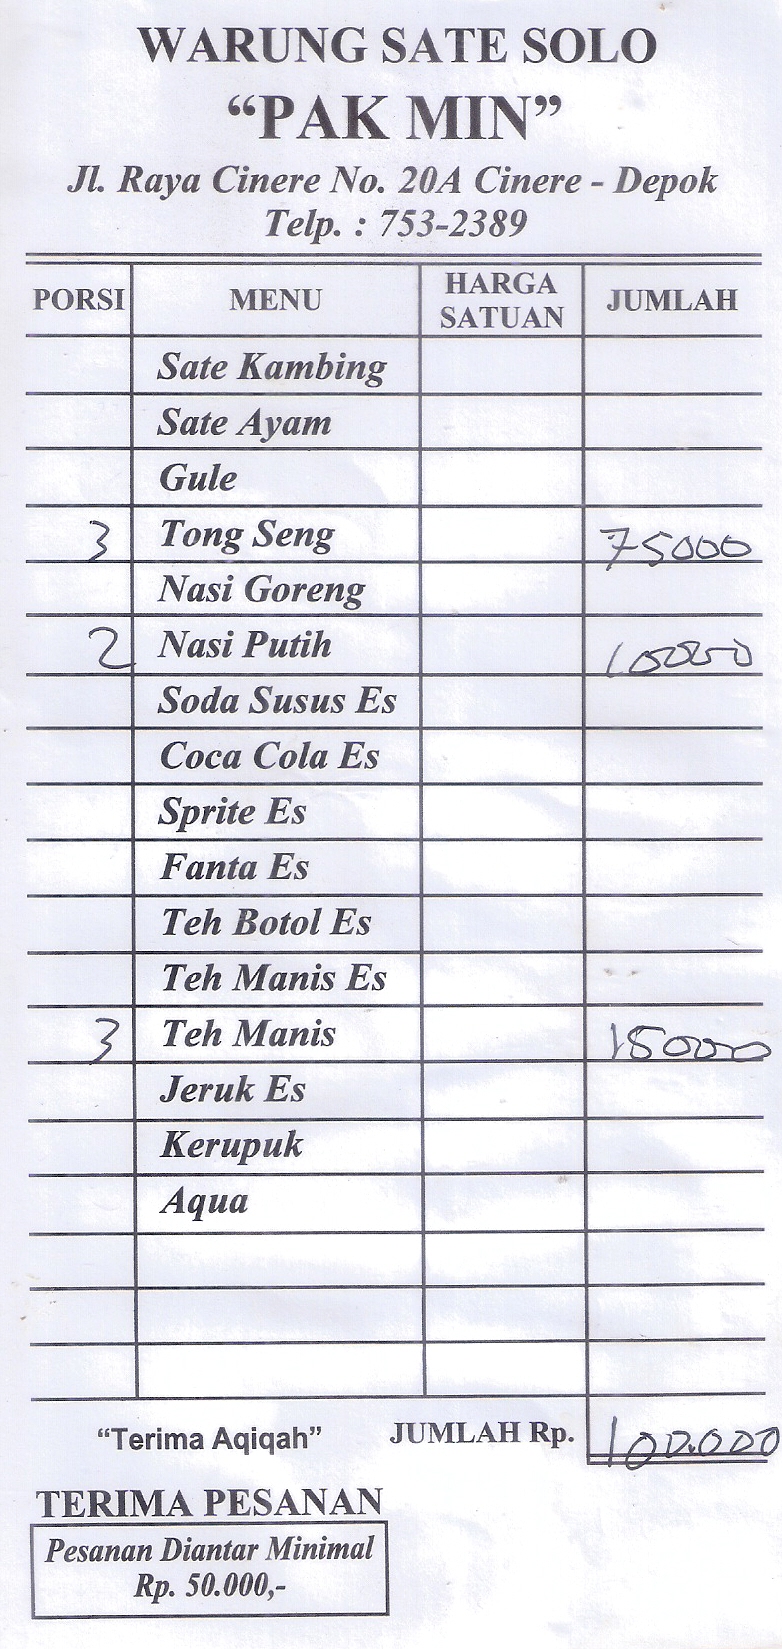 WARUNG SATE SOLO
“PAK MIN”
Jl. Raya Cinere No. 20A Cinere - Depok
Telp. : 753-2389
PORSI MENU HARGA SATUAN JUMLAH
Sate Kambing
Sate Ayam
Gule
3 Tong Seng 75000
Nasi Goreng
2 Nasi Putih 10000
Soda Susus Es
Coca Cola Es
Sprite Es
Fanta Es
Teh Botol Es
Teh Manis Es
3 Teh Manis 15000
Jeruk Es
Kerupuk
Aqua
“Terima Aqiqah” JUMLAH Rp. 100.000
TERIMA PESANAN
Pesanan Diantar Minimal
Rp. 50.000,-